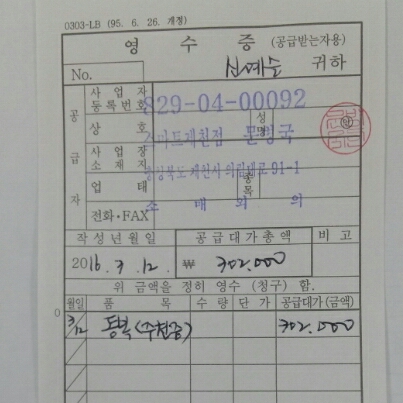 0303-LB (95. 6. 26. 개정)
영 수 증 (공급받는자용)
No. 신예슬 귀하
공급자
사업자등록번호 829-04-00092
상호 스마트제천점 성명 문병국
사업장소재지 충청북도 제천시 의림대로 91-1
업태 소매 외 종목 의
전화·FAX
작성년월일 공급대가총액 비고
2016. 3. 12. ₩ 302.000
위 금액을 정히 영수 (청구) 함.
월일 품목 수량 단가 공급대가(금액)
3/12 동복 302.000